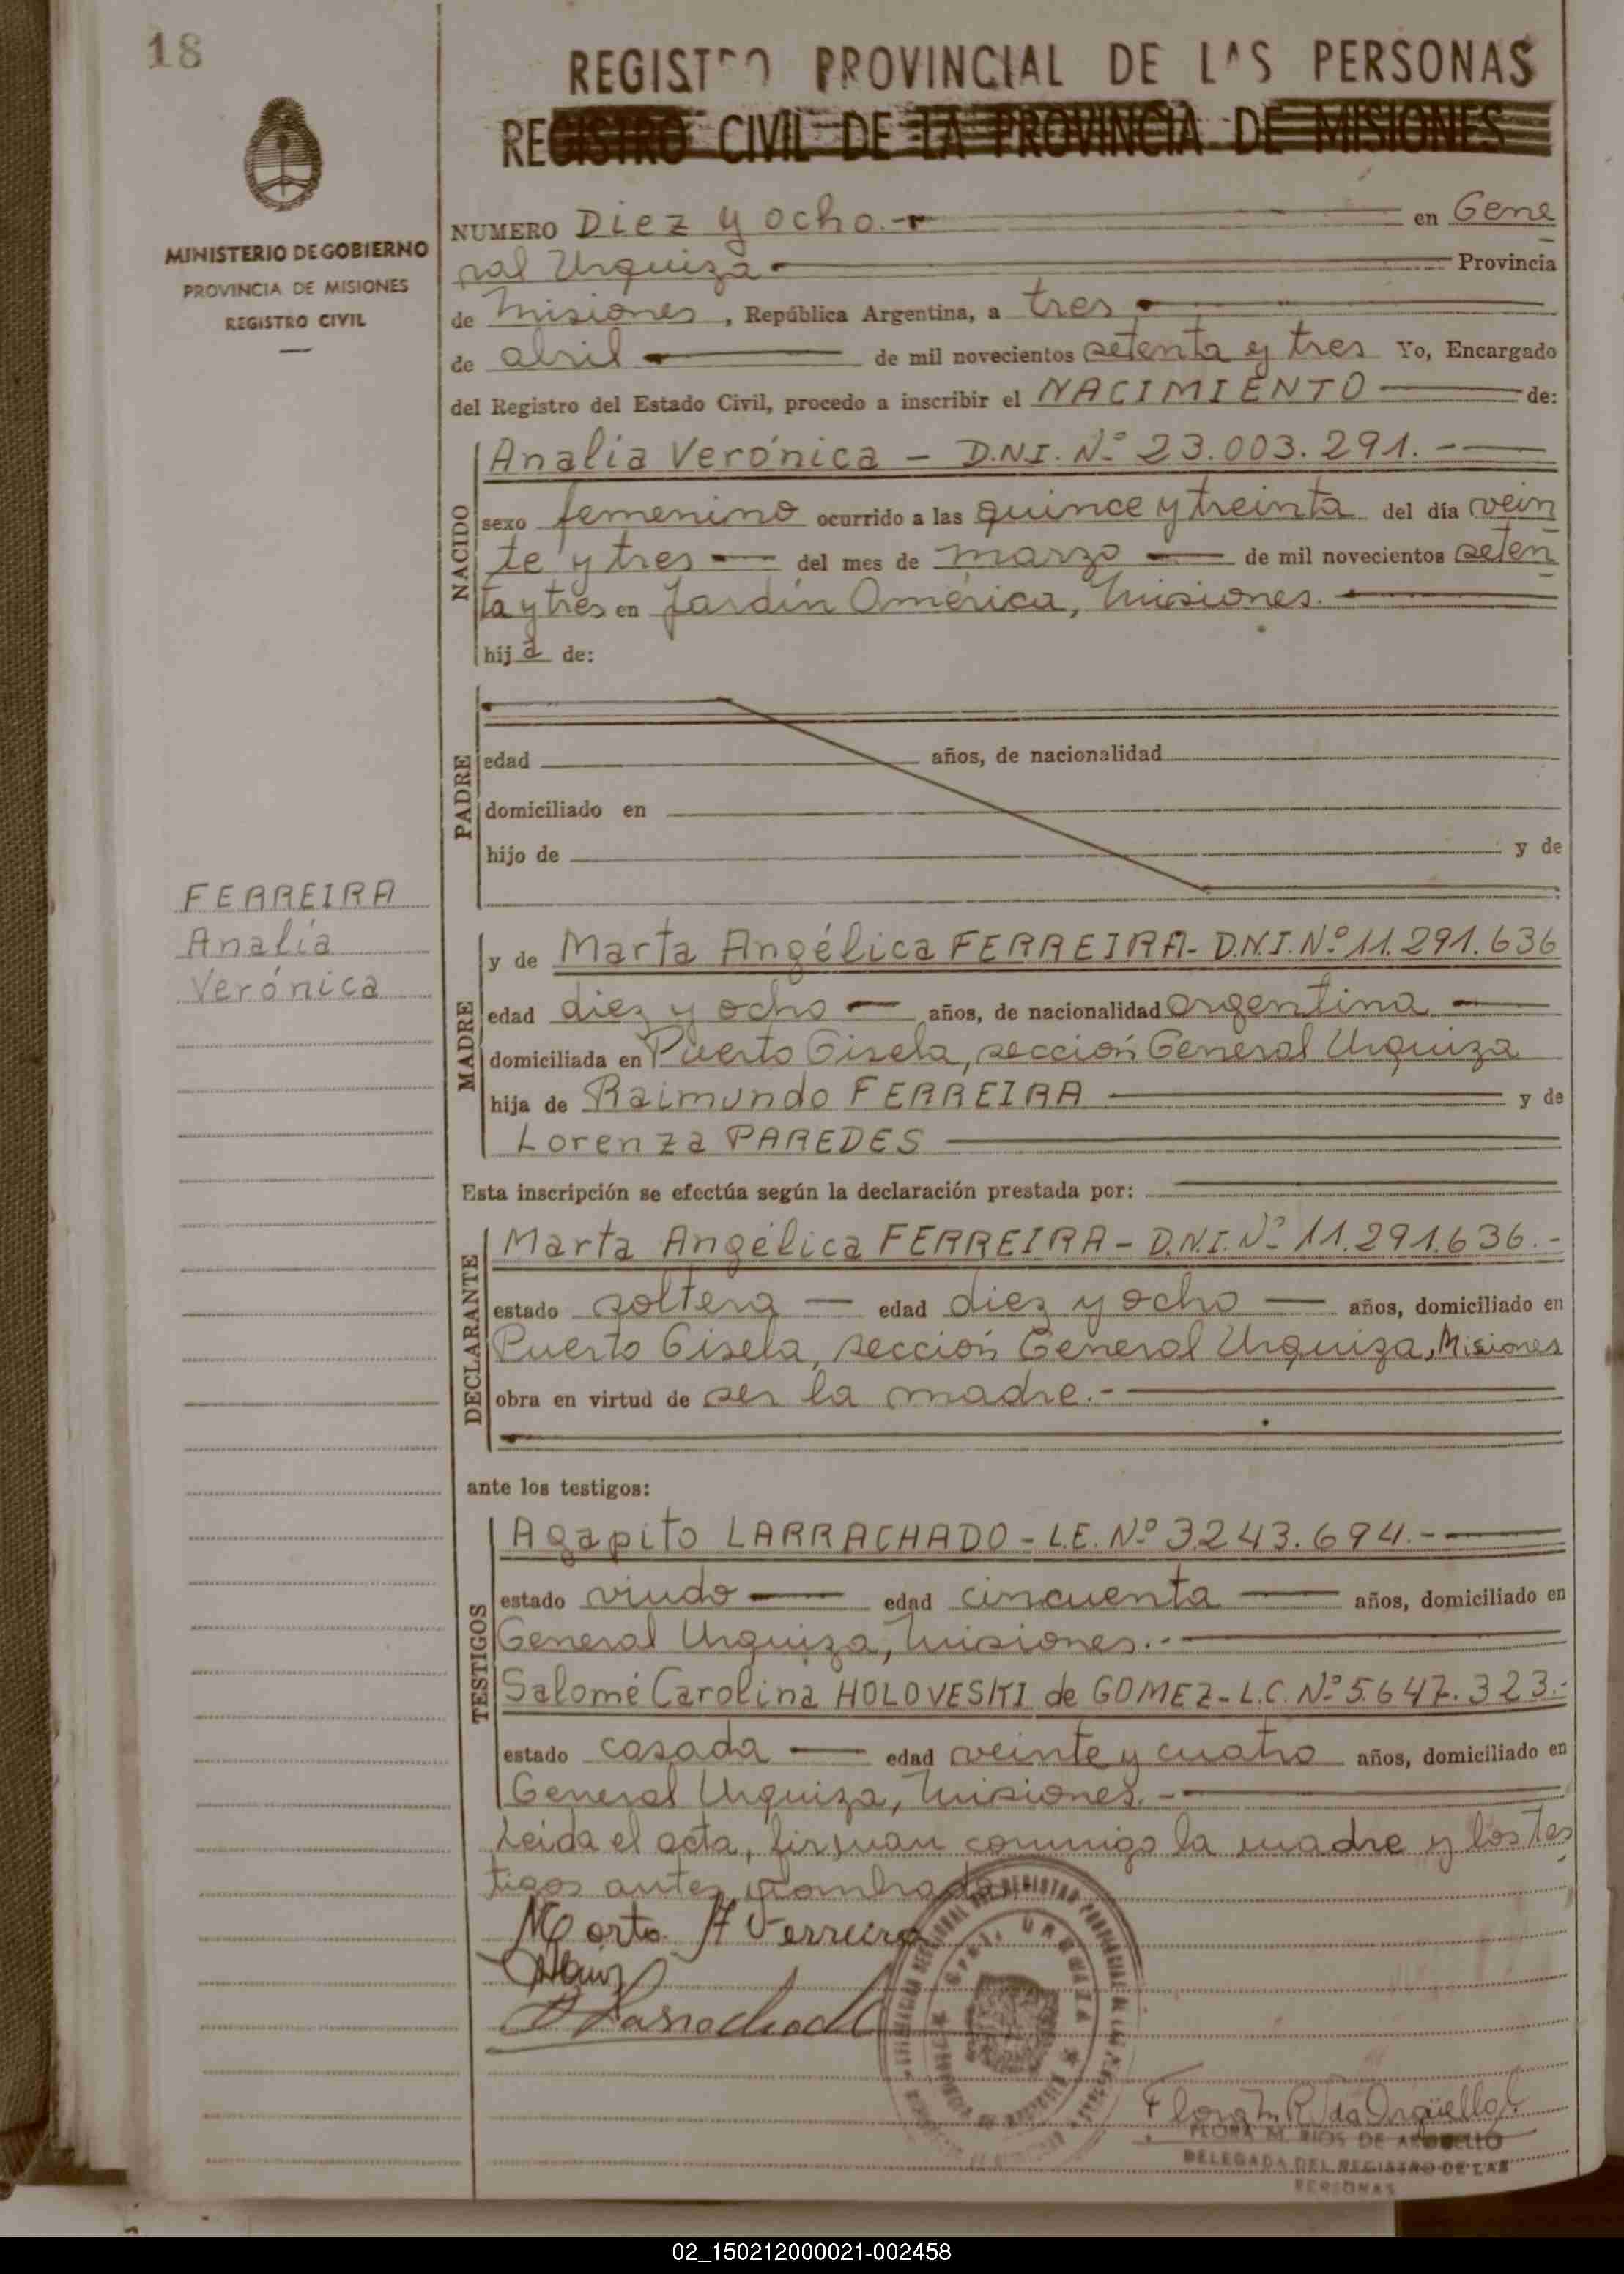 18
REGISTRO PROVINCIAL DE LAS PERSONAS
REGISTRO CIVIL DE LA PROVINCIA DE MISIONES
MINISTERIO DE GOBIERNO
PROVINCIA DE MISIONES
REGISTRO CIVIL
NUMERO Diez y ocho.- en Gene
ral Urquiza Provincia
de Misiones, República Argentina, a tres
de abril de mil novecientos setenta y tres Yo, Encargado
del Registro del Estado Civil, procedo a inscribir el NACIMIENTO de:
NACIDO
Analía Verónica - D.N.I. Nº 23.003.291.-
sexo femenino ocurrido a las quince y treinta del día vein
te y tres del mes de marzo de mil novecientos seten
ta y tres en Jardín América, Misiones.
hija de:
PADRE
edad años, de nacionalidad
domiciliado en
hijo de y de
FERREIRA
Analía
Verónica
MADRE
y de Marta Angélica FERREIRA- D.N.I. Nº 11.291.636
edad diez y ocho años, de nacionalidad argentina
domiciliada en Puerto Gisela, sección General Urquiza
hija de Raimundo FERREIRA y de
Lorenza PAREDES
Esta inscripción se efectúa según la declaración prestada por:
DECLARANTE
Marta Angélica FERREIRA - D.N.I. Nº 11.291.636.-
estado soltera edad diez y ocho años, domiciliado en
Puerto Gisela, sección General Urquiza, Misiones
obra en virtud de ser la madre.-
ante los testigos:
TESTIGOS
Agapito LARRACHADO - L.E. Nº 3.243.694.-
estado viudo edad cincuenta años, domiciliado en
General Urquiza, Misiones.-
Salomé Carolina HOLOVESKI de GOMEZ - L.C. Nº 5.647.323.-
estado casada edad veinte y cuatro años, domiciliado en
General Urquiza, Misiones.-
Leída el acta, firman conmigo la madre y los tes
tigos antes nombrados.
Marta A Ferreira
A Larrachado
GRAL. URQUIZA
Flora M. R. de Argüello
FLORA M. RIOS DE ARGUELLO
DELEGADA DEL REGISTRO DE LAS
PERSONAS
02_150212000021-002458